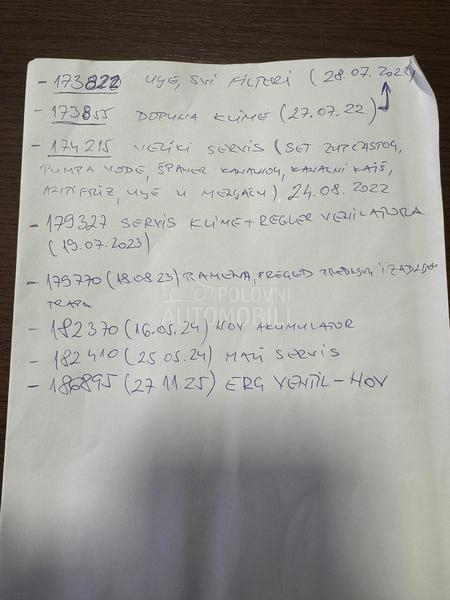 - 173822 ULJE, SVI FILTERI (28.07.2022)
- 173855 DOPUNA KLIME (27.07.22)
- 174215 VELIKI SERVIS (SET ZUPČASTOG,
PUMPA VODE, ŠPANER KANALNOG, KANALNI KAIŠ,
ANTIFRIZ, ULJE U MENJAČU), 24.08.2022
- 179327 SERVIS KLIME + REGLER VENTILATORA
(19.07.2023)
- 179770 (18.08.23) RAMENA, PREGLED PREDNJEG I ZADNJEG
TRAPA
POLOVNI
AUTOMOBILI
- 182370 (16.05.24) NOV AKUMULATOR
- 182410 (25.05.24) MALI SERVIS
- 186895 (27.11.25) ERG VENTIL - NOV